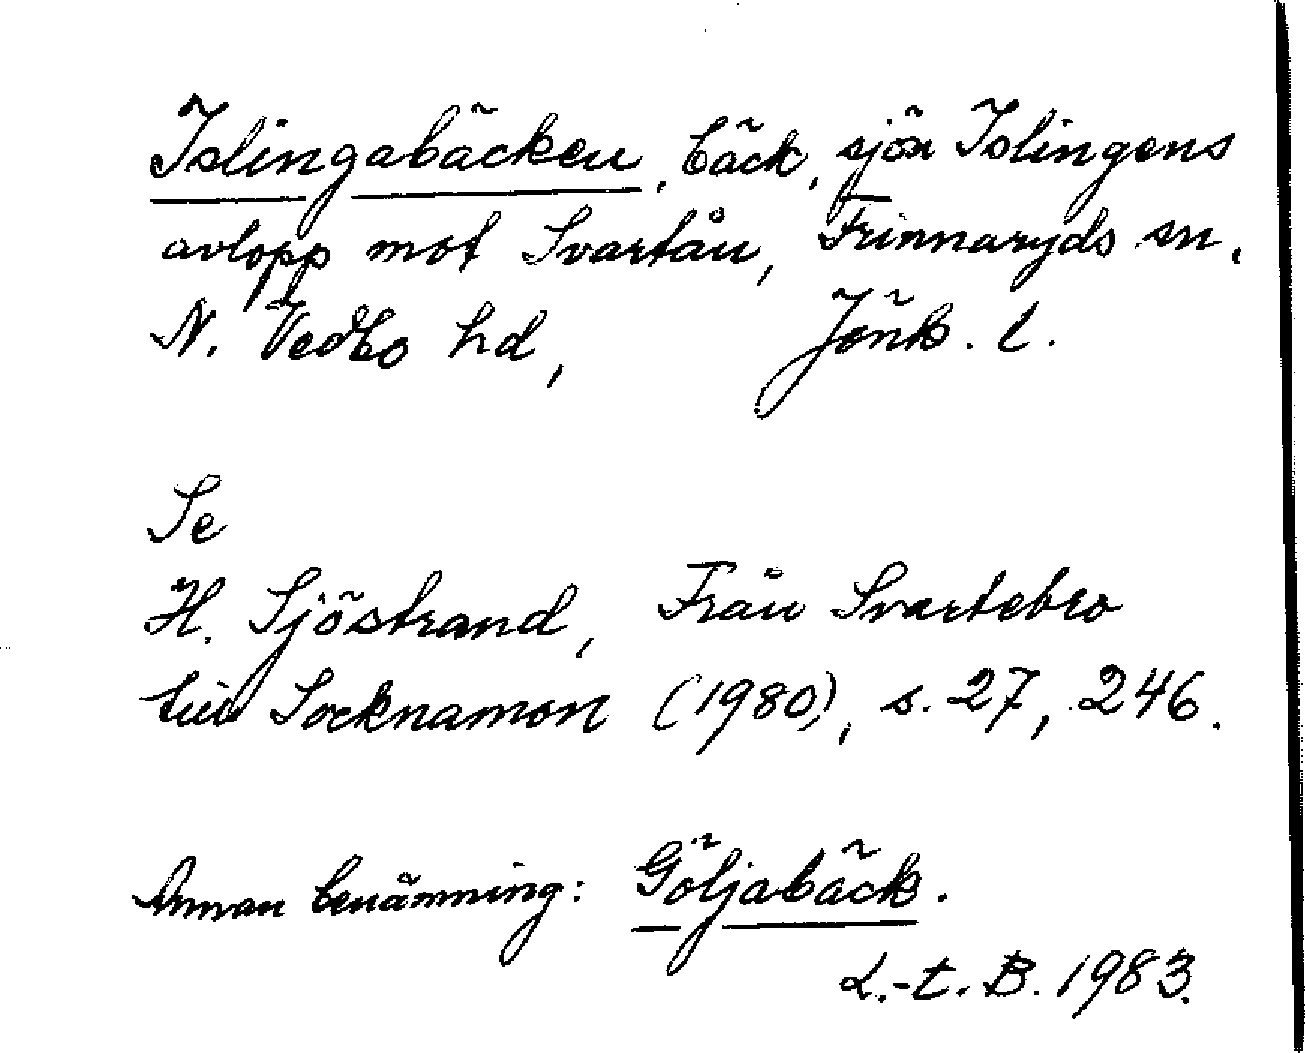 Islingabäcken, bäck, sjön Islingens
avlopp mot Svartån, Frinnaryds sn.
N. Vedbo hd, Jönk. l.
Se
H. Sjöstrand, Från Svartebro
till Socknamon (1980), s. 27, 246.
Annan benämning: Göljabäck.
L.-t. B. 1983.